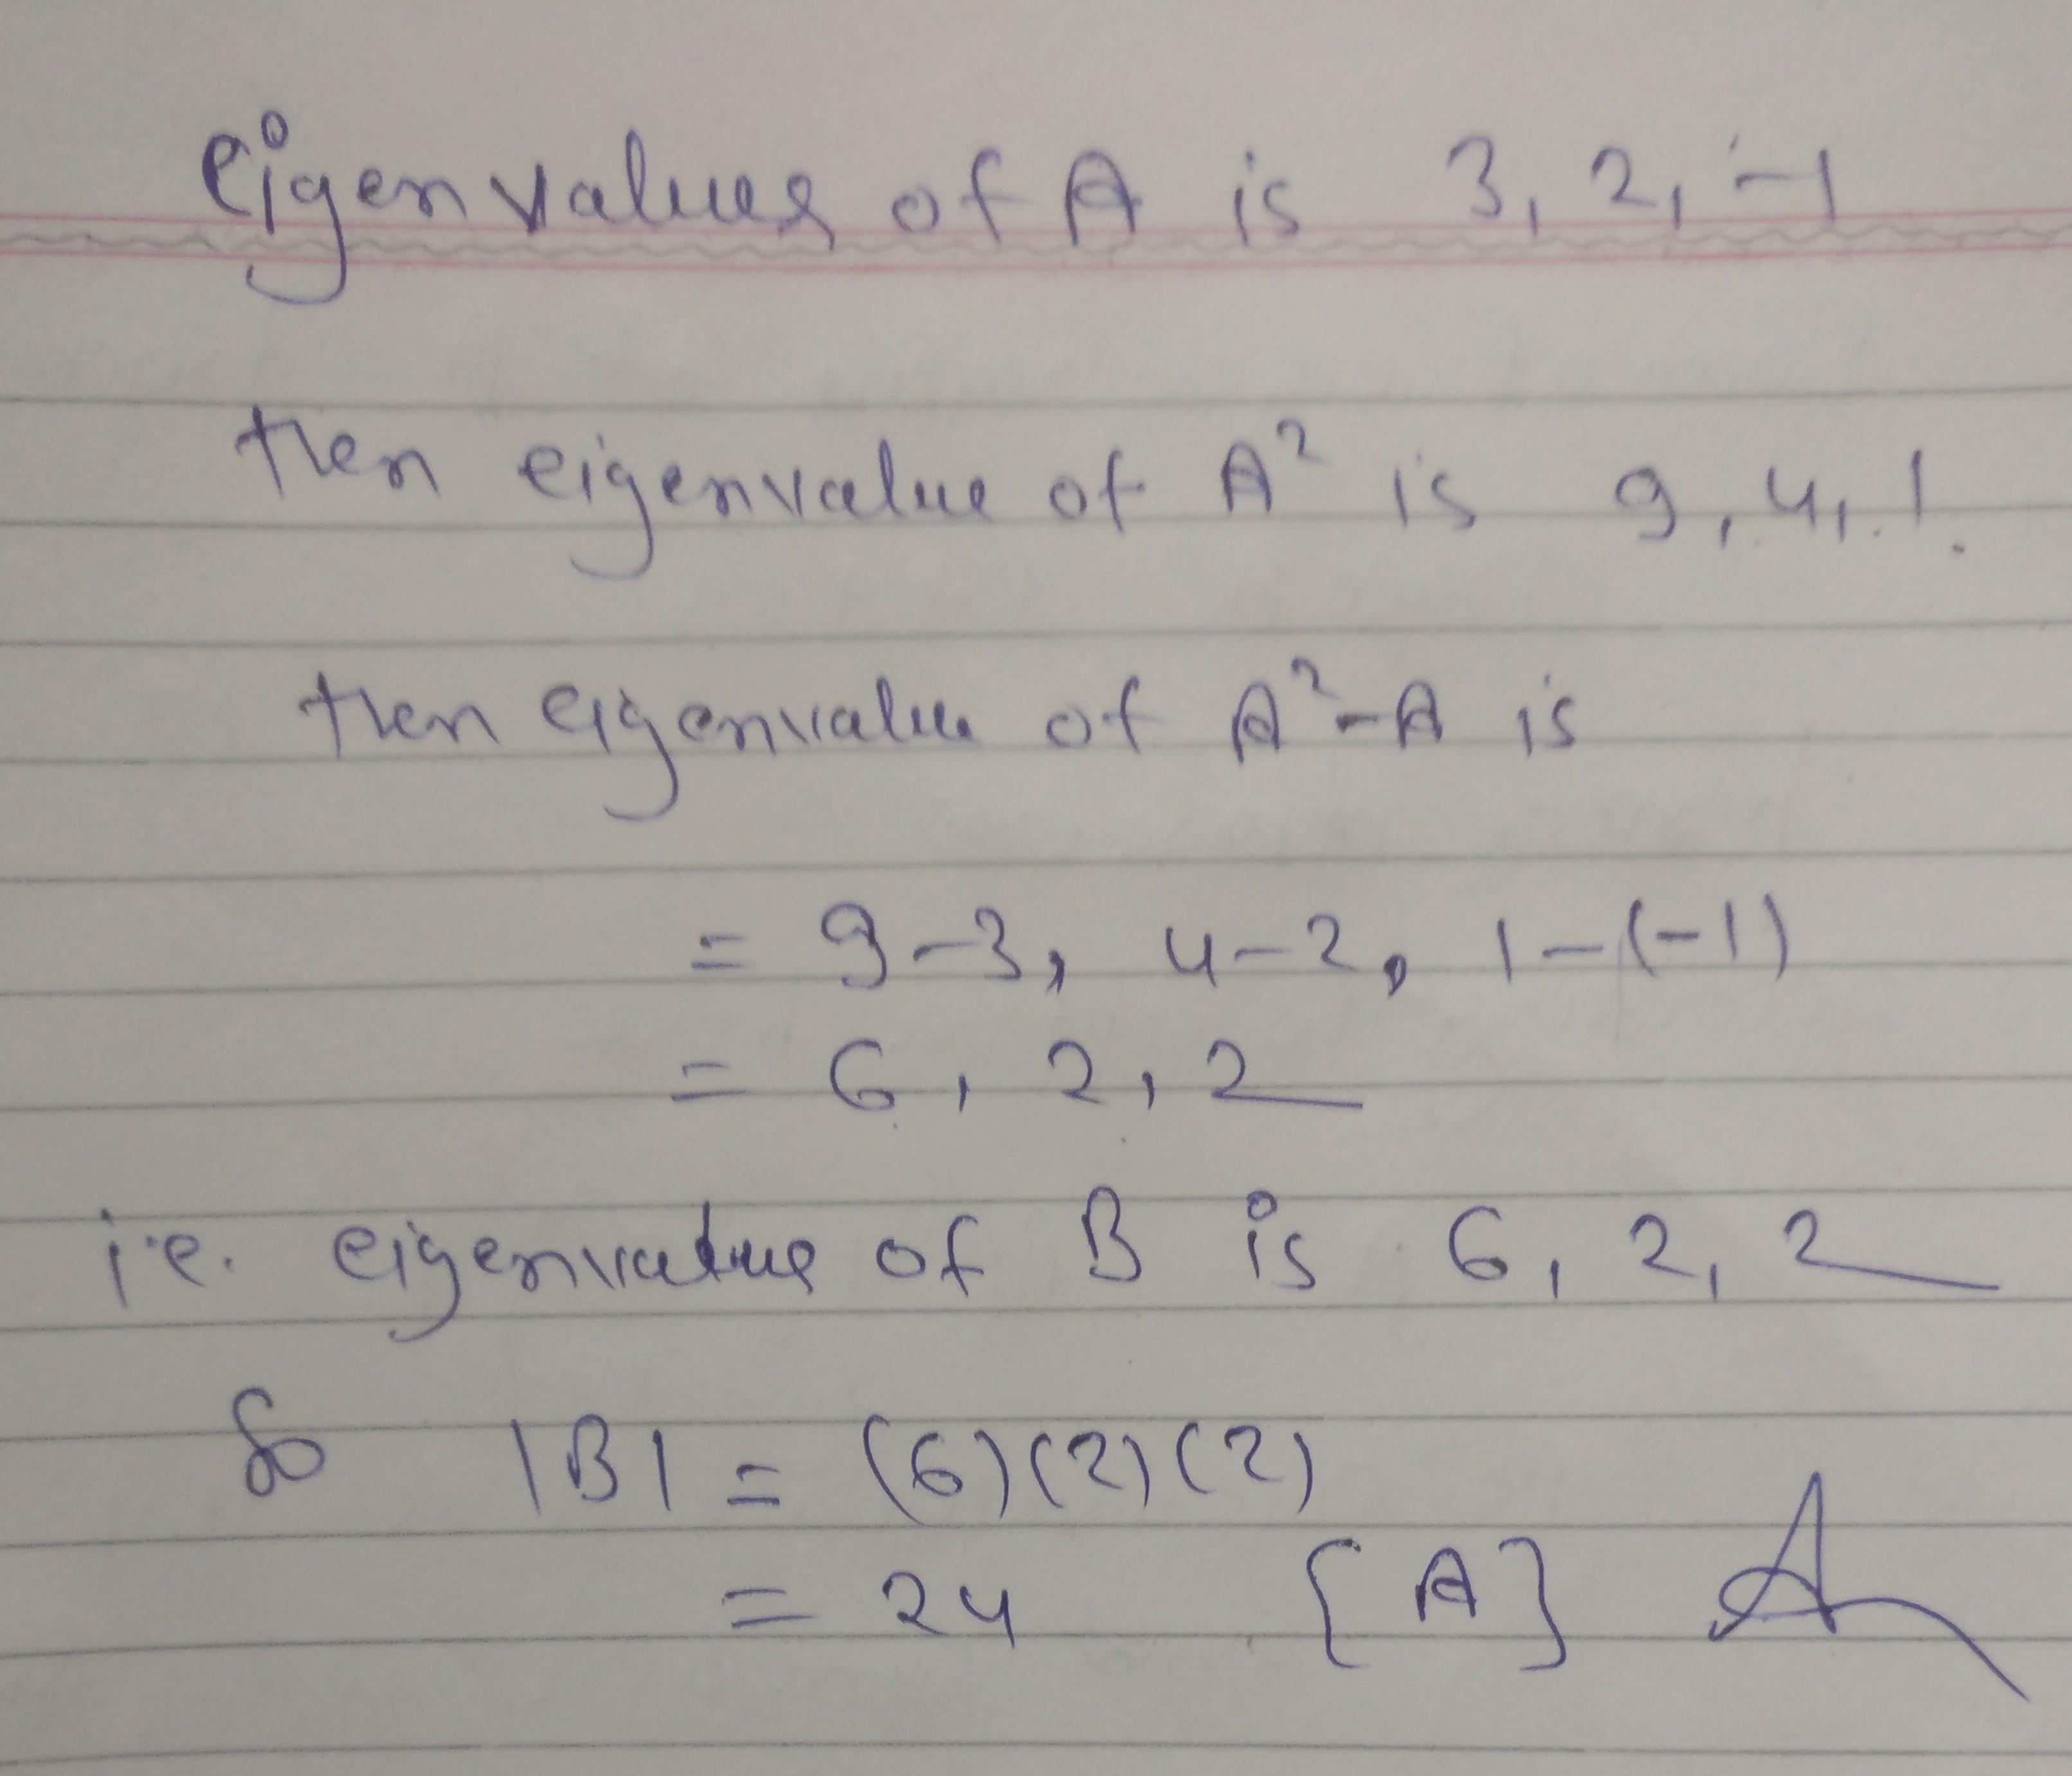 Eigenvalues of A is 3, 2, -1
then eigenvalue of A² is 9, 4, 1.
then eigenvalue of A²-A is
= 9-3, 4-2, 1-(-1)
= 6, 2, 2
i.e. eigenvalue of B is 6, 2, 2
So |B| = (6)(2)(2)
= 24 [A]